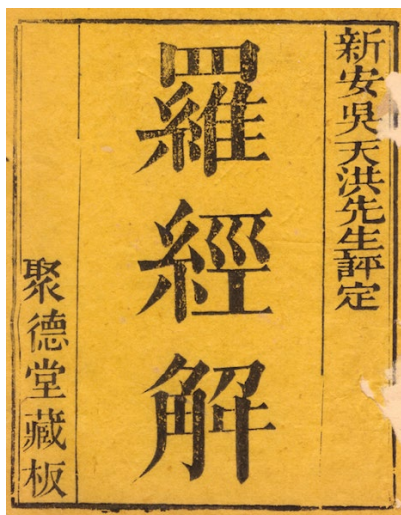 新安吳天洪先生評定
羅經解
聚德堂藏板